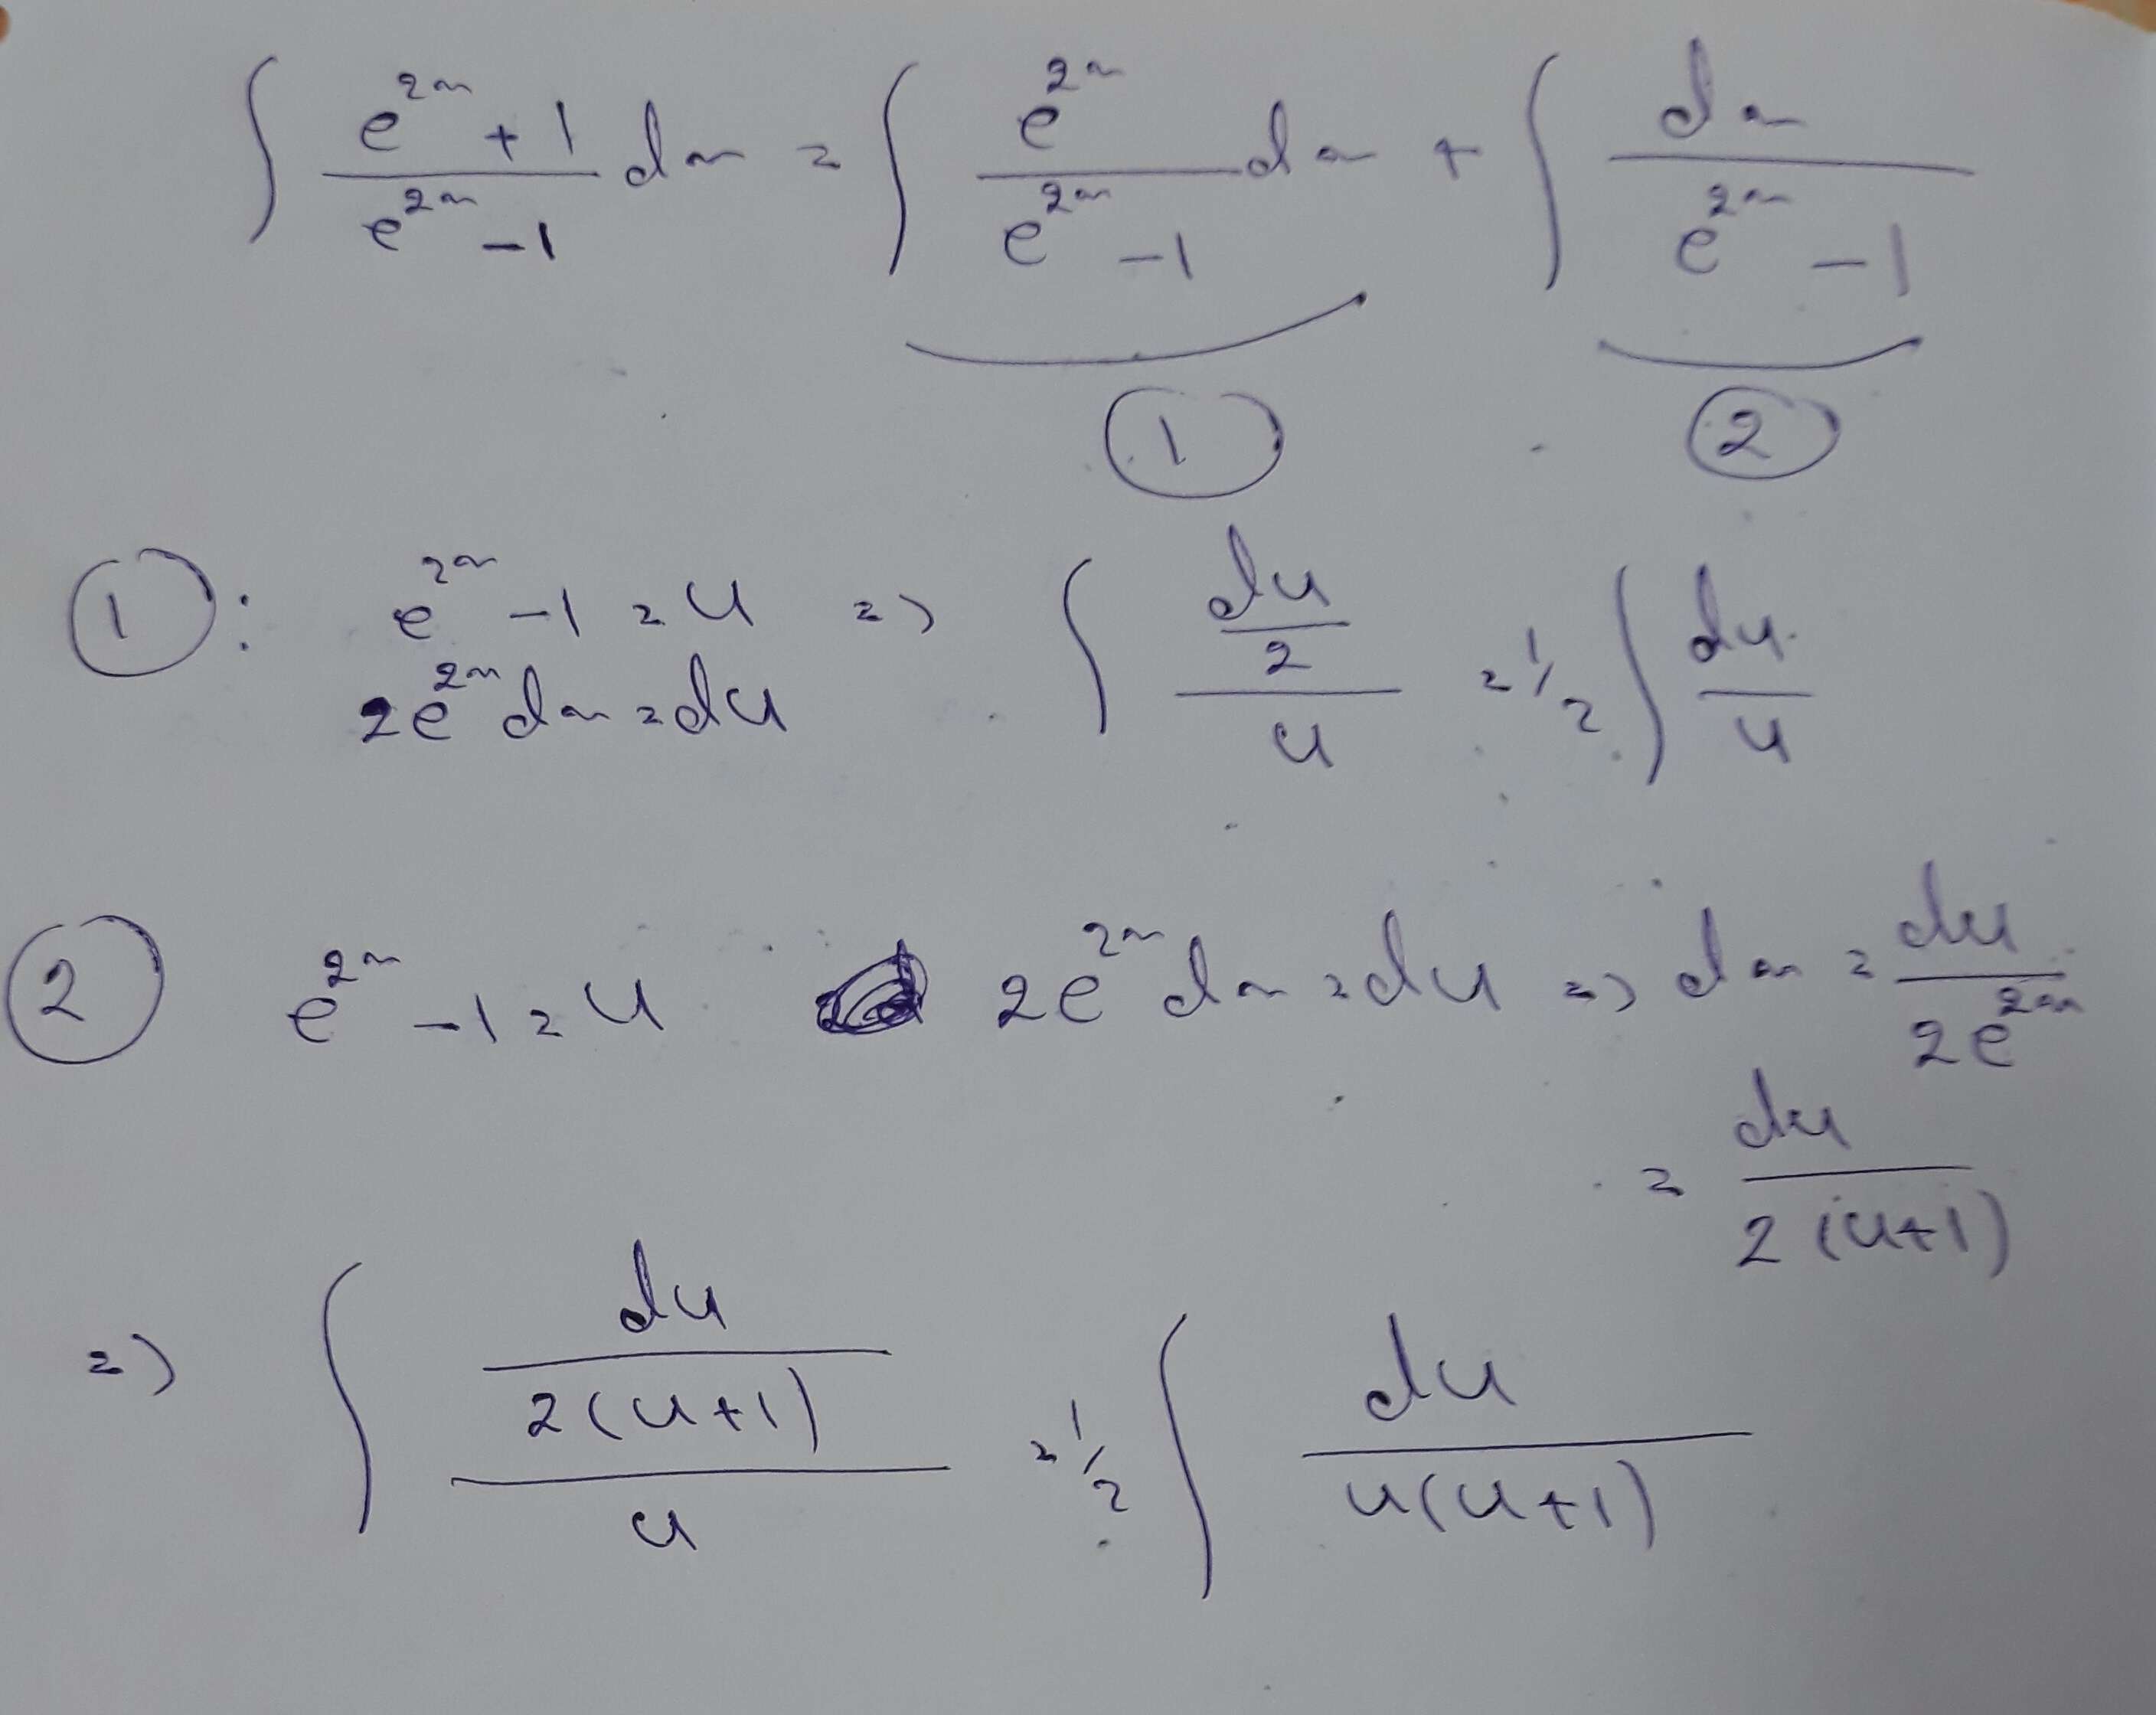 ∫ (e^{2x} + 1)/(e^{2x} - 1) dx = ∫ e^{2x}/(e^{2x} - 1) dx + ∫ dx/(e^{2x} - 1)
① ②
①: e^{2x} - 1 = u => ∫ (du/2)/u = 1/2 ∫ du/u
2e^{2x} dx = du
② e^{2x} - 1 = u 2e^{2x} dx = du => dx = du/(2e^{2x})
= du/(2(u+1))
=> ∫ (du/(2(u+1)))/u = 1/2 ∫ du/(u(u+1))